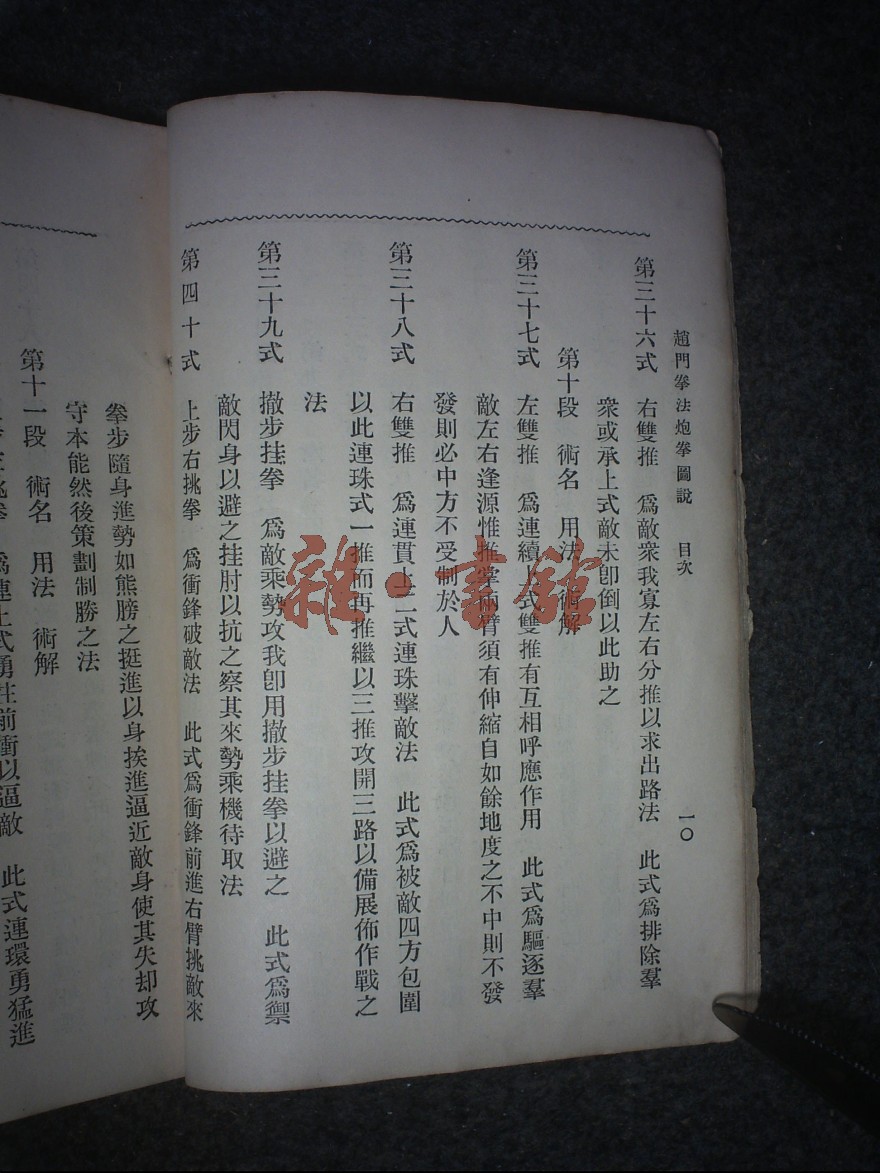 趙門拳法炮拳圖說 目次 一〇
第三十六式 右雙推 爲敵衆我寡左右分推以求出路法 此式爲排除羣
衆或承上式敵未卽倒以此助之
第十段 術名 用法 術解
第三十七式 左雙推 爲連續上式雙推有互相呼應作用 此式爲驅逐羣
敵左右逢源惟推掌兩臂須有伸縮自如餘地度之不中則不發
發則必中方不受制於人
第三十八式 右雙推 爲連貫上二式連珠擊敵法 此式爲被敵四方包圍
以此連珠式一推而再推繼以三推攻開三路以備展佈作戰之
法
第三十九式 撤步挂拳 爲敵乘勢攻我卽用撤步挂拳以避之 此式爲禦
敵閃身以避之挂肘以抗之察其來勢乘機待取法
第四十式 上步右挑拳 爲衝鋒破敵法 此式爲衝鋒前進右臂挑敵來
拳步隨身進勢如熊膀之挺進以身挨進逼近敵身使其失却攻
守本能然後策劃制勝之法
第十一段 術名 用法 術解
挑拳 爲連上式勇往前衝以逼敵 此式連環勇猛進
雜·書館